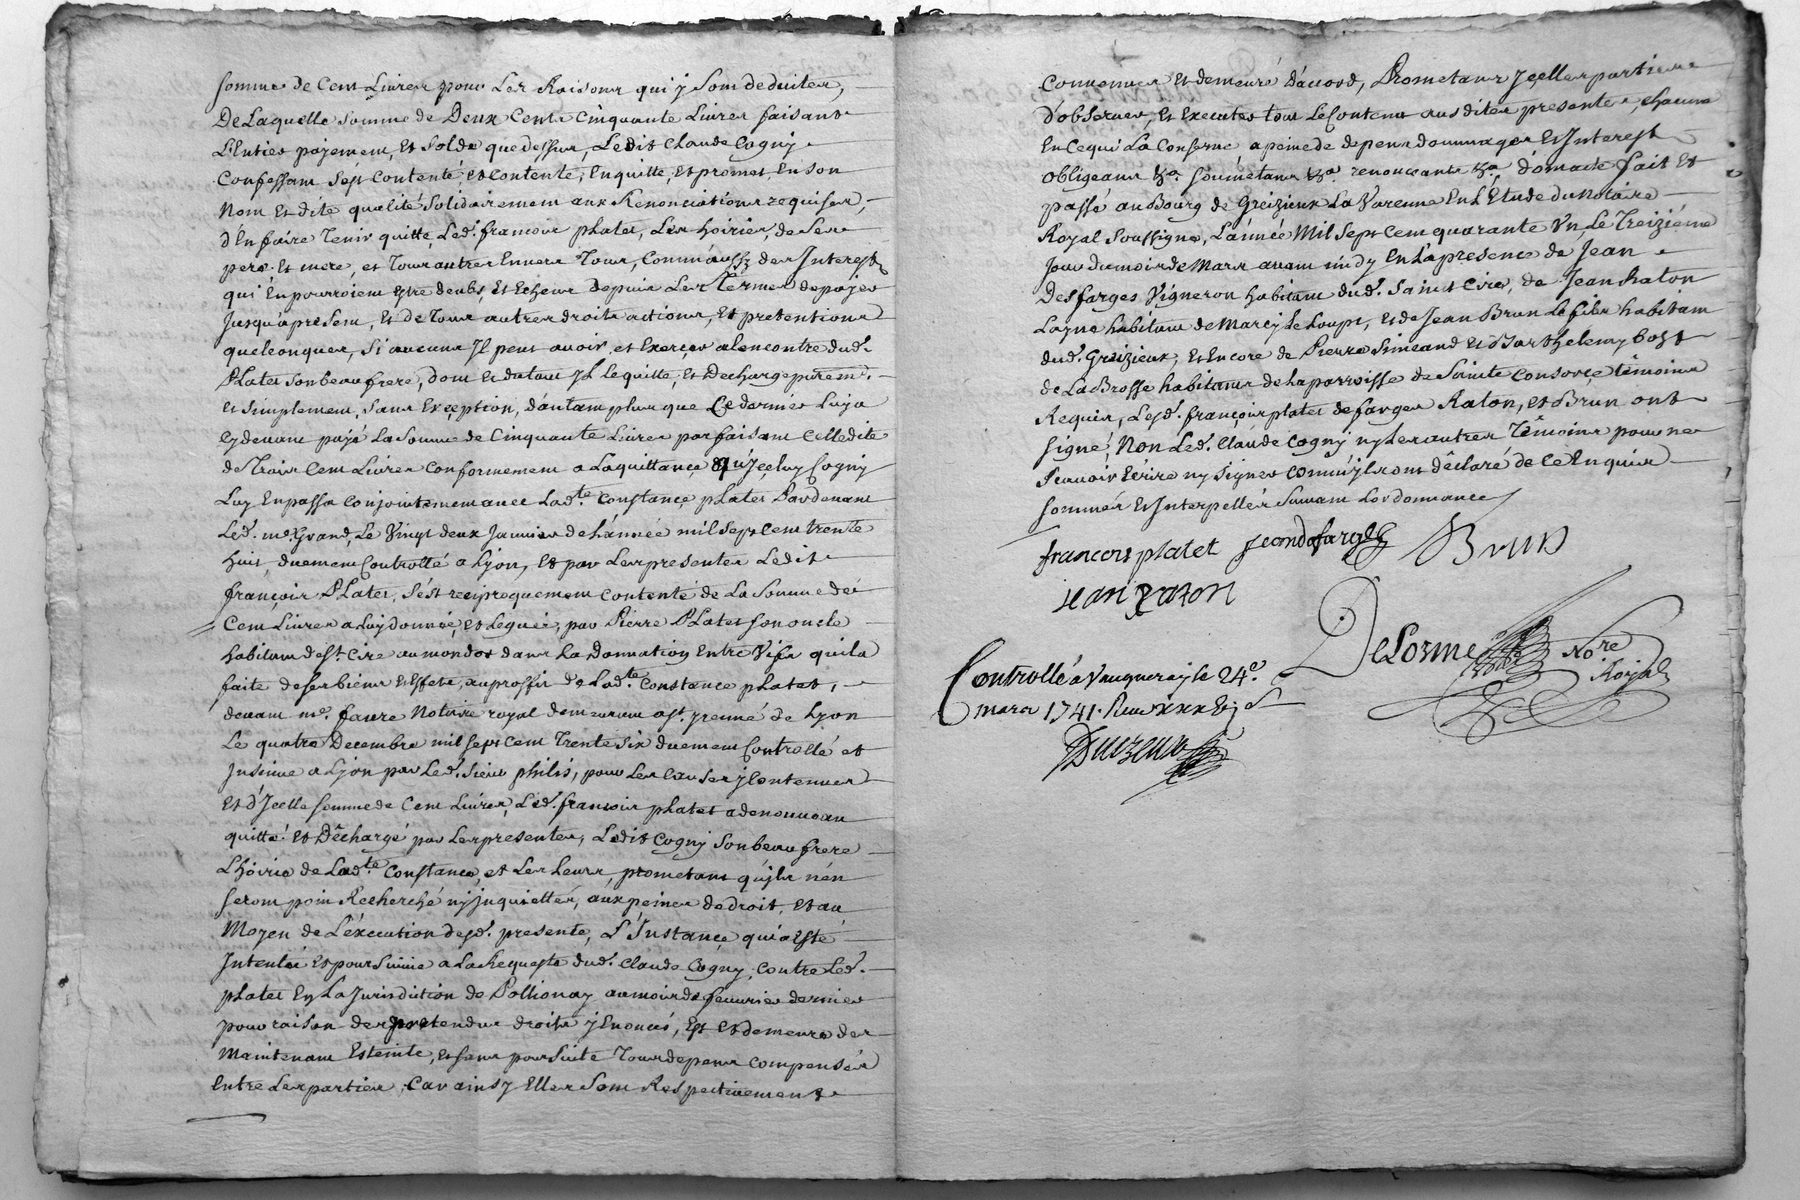 somme de Cent Livres pour Les Raisons qui y Sont deduites,
De Laquelle somme de Deux Cents Cinquante Livres faisant
L'Entier payement, Et Solde que dessus, Ledit Claude Cogny
Confessant s'est Contenté et contente, En quitte, et promet, En son
Nom Et dite qualité Solidairement aux Renonciations requises,
d'En faire Tenir quitte Led. françois platet, Les hoiries, de Ses
pere Et mere, et Tous autres Envers Tous, Comm'aussy des Interest
qui En pourroient Estre deubs, Et Echeus depuis Les Termes de payer
Jusqu'apresent, Et de Tous autres droits actions, Et pretentions
quelconques, Si aucuns Il peut avoir et Exercer alencontre dud.
Platet Son beaufrere, dont Et dutout Il Le quitte, Et Decharge purem.t
Et Simplement, Sans Exception, d'autant plus que Ce dernier Luy a
Cy devant payé La Somme de Cinquante Livres parfaisant Celle dite
de Trois Cent Livres Conformement a La quittance qu'Jceluy Cogny
Luy En passa Conjointement avec Lad.te Constance platet Pardevant
Led. me. Grand, Le Vingt deux Janvier de L'année mil Sept Cent trente
huit, duement Controllé a Lyon, Et par Les presentes Ledit
françois Platet, S'est reciproquement Contenté de La Somme de
Cent Livres a Luy donnée, et Leguée, par Pierre Platet Son oncle
habitant de St. Cire au mondor dans La Donnation Entre Vifs quil a
faite de Ses biens Et Effets, au proffit de Lad.te Constance platet,
devant me. favre Notaire royal demeurant a St. yrenné de Lyon
Le quatre Decembre mil Sept Cent Trente Six duement Controllé et
Insinué a Lyon par Led. Sieur philis, pour Les Causes y Contenues
Et d'Jcelle Somme de Cent Livres, Led. françois platet a de nouveau
quitté Et Déchargé par Les presentes, Ledit Cogny Son beaufrere
L'hoirie de Lad.te Constance, et Les Leurs, prometant qu'jls n'en
Seront poin Recherché ny jnquietté, aux peines de droit, Et au
Moyen de L'éxecution desd. presente, L'Instance qui a Esté
Intentée Et poursuivie a La Requeste dud. Claude Cogny, Contre Led.
platet En La Jurisdiction de Pollionay au mois de fevrier dernier
pour raison des pretendus droits y Enoncés, Est Et demeure des
Maintenant Esteinte, Et Sans poursuite Tous depens Compensés
Entre Les parties, Car ainsy Elles Sont Respectivement
Convenues Et demeuré D'accord, Prometans Jcelles parties
d'observer, Et Executer tout Le Contenu ausdites presentes, chacune
En Ce qui La Conserne a peine de depens dommages Et Interest
obligeans &a. Soumetans &a. renonçants &a. dont acte fait Et
passé au Bourg de Greizieux La Varenne En L'Etude du Notaire
Royal Soussigné, L'année Mil Sept Cent quarante Vn, Le Treiziéme
Jour du mois de Mars avant midy En La presence de Jean
Desfarges Vigneron habitant dud. Saint Cire, de Jean Raton
Layné habitant de Marcy Le Loups, et de Jean Brun Le fils habitant
dud. Greizieux, Et Encore de Pierre Simeand Et Barthelemy bost
de La Brosse habitans de La parroisse de Sainte Consorce, témoins
Requis, Lesd. françois platet desfarges Raton, et Brun ont
Signé, Non Led. Claude Cogny ny Les autres Témoins pour ne
Scavoir Ecrire ny Signer comm'jls ont declaré de Ce Enquis
Sommés Et Interpellés Suivant Lordonnance
francois platet jean defarges Brun
jean raton
DeLorme Nore
Royal
Controllé a Vaugneray le 24e.
mars 1741.